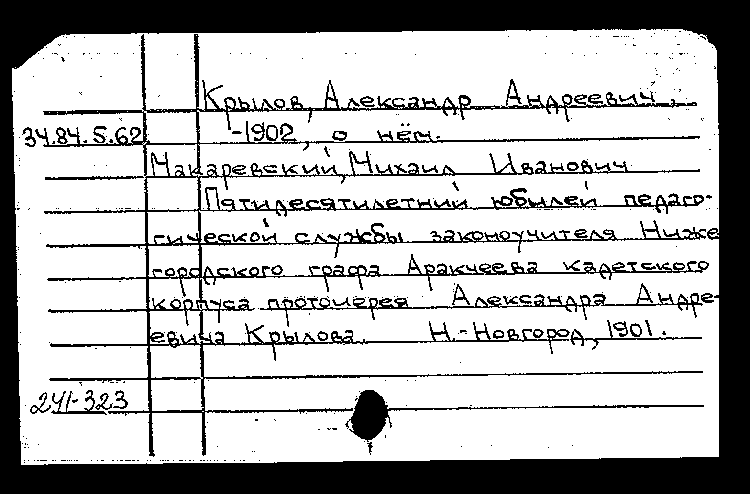 Крылов, Александр Андреевич,
34.84.5.62 -1902, о нём.
Макаревский, Михаил Иванович
Пятидесятилетний юбилей педаго-
гической службы законоучителя Ниже
городского графа Аракчеева кадетского
корпуса протоиерея Александра Андре-
евича Крылова. Н.-Новгород, 1901.
241-323